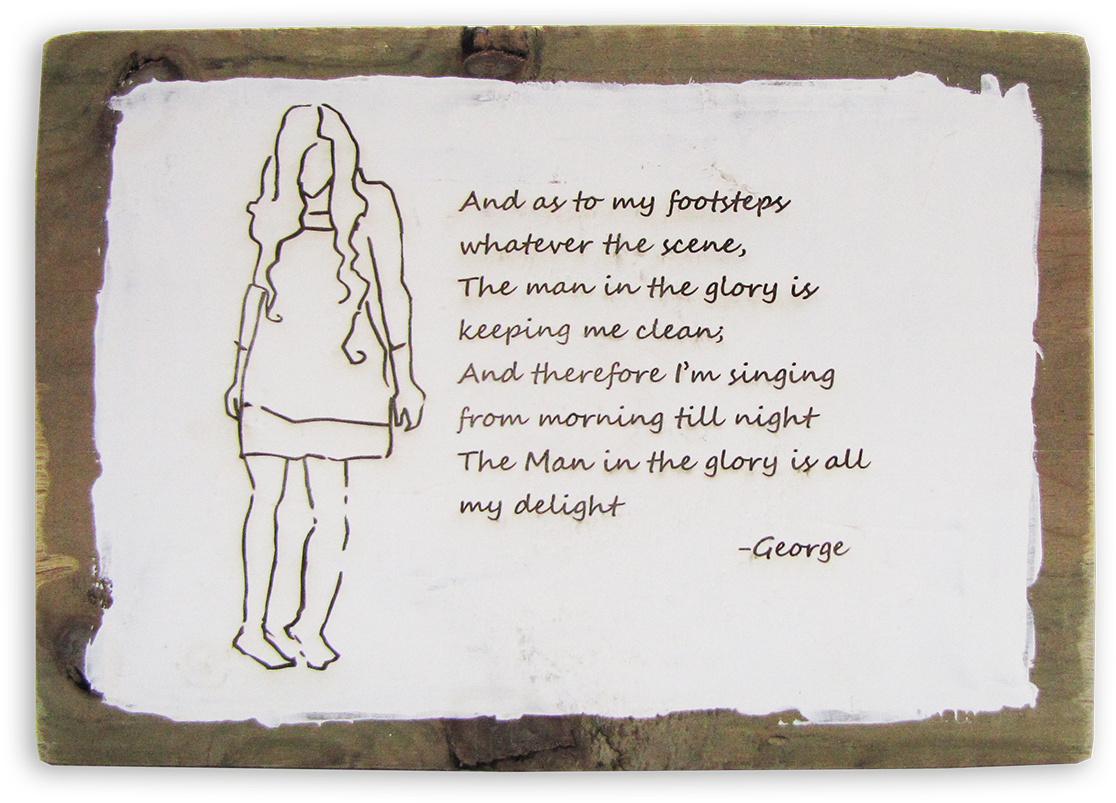 And as to my footsteps
whatever the scene,
The man in the glory is
keeping me clean;
And therefore I'm singing
from morning till night
The Man in the glory is all
my delight
-George